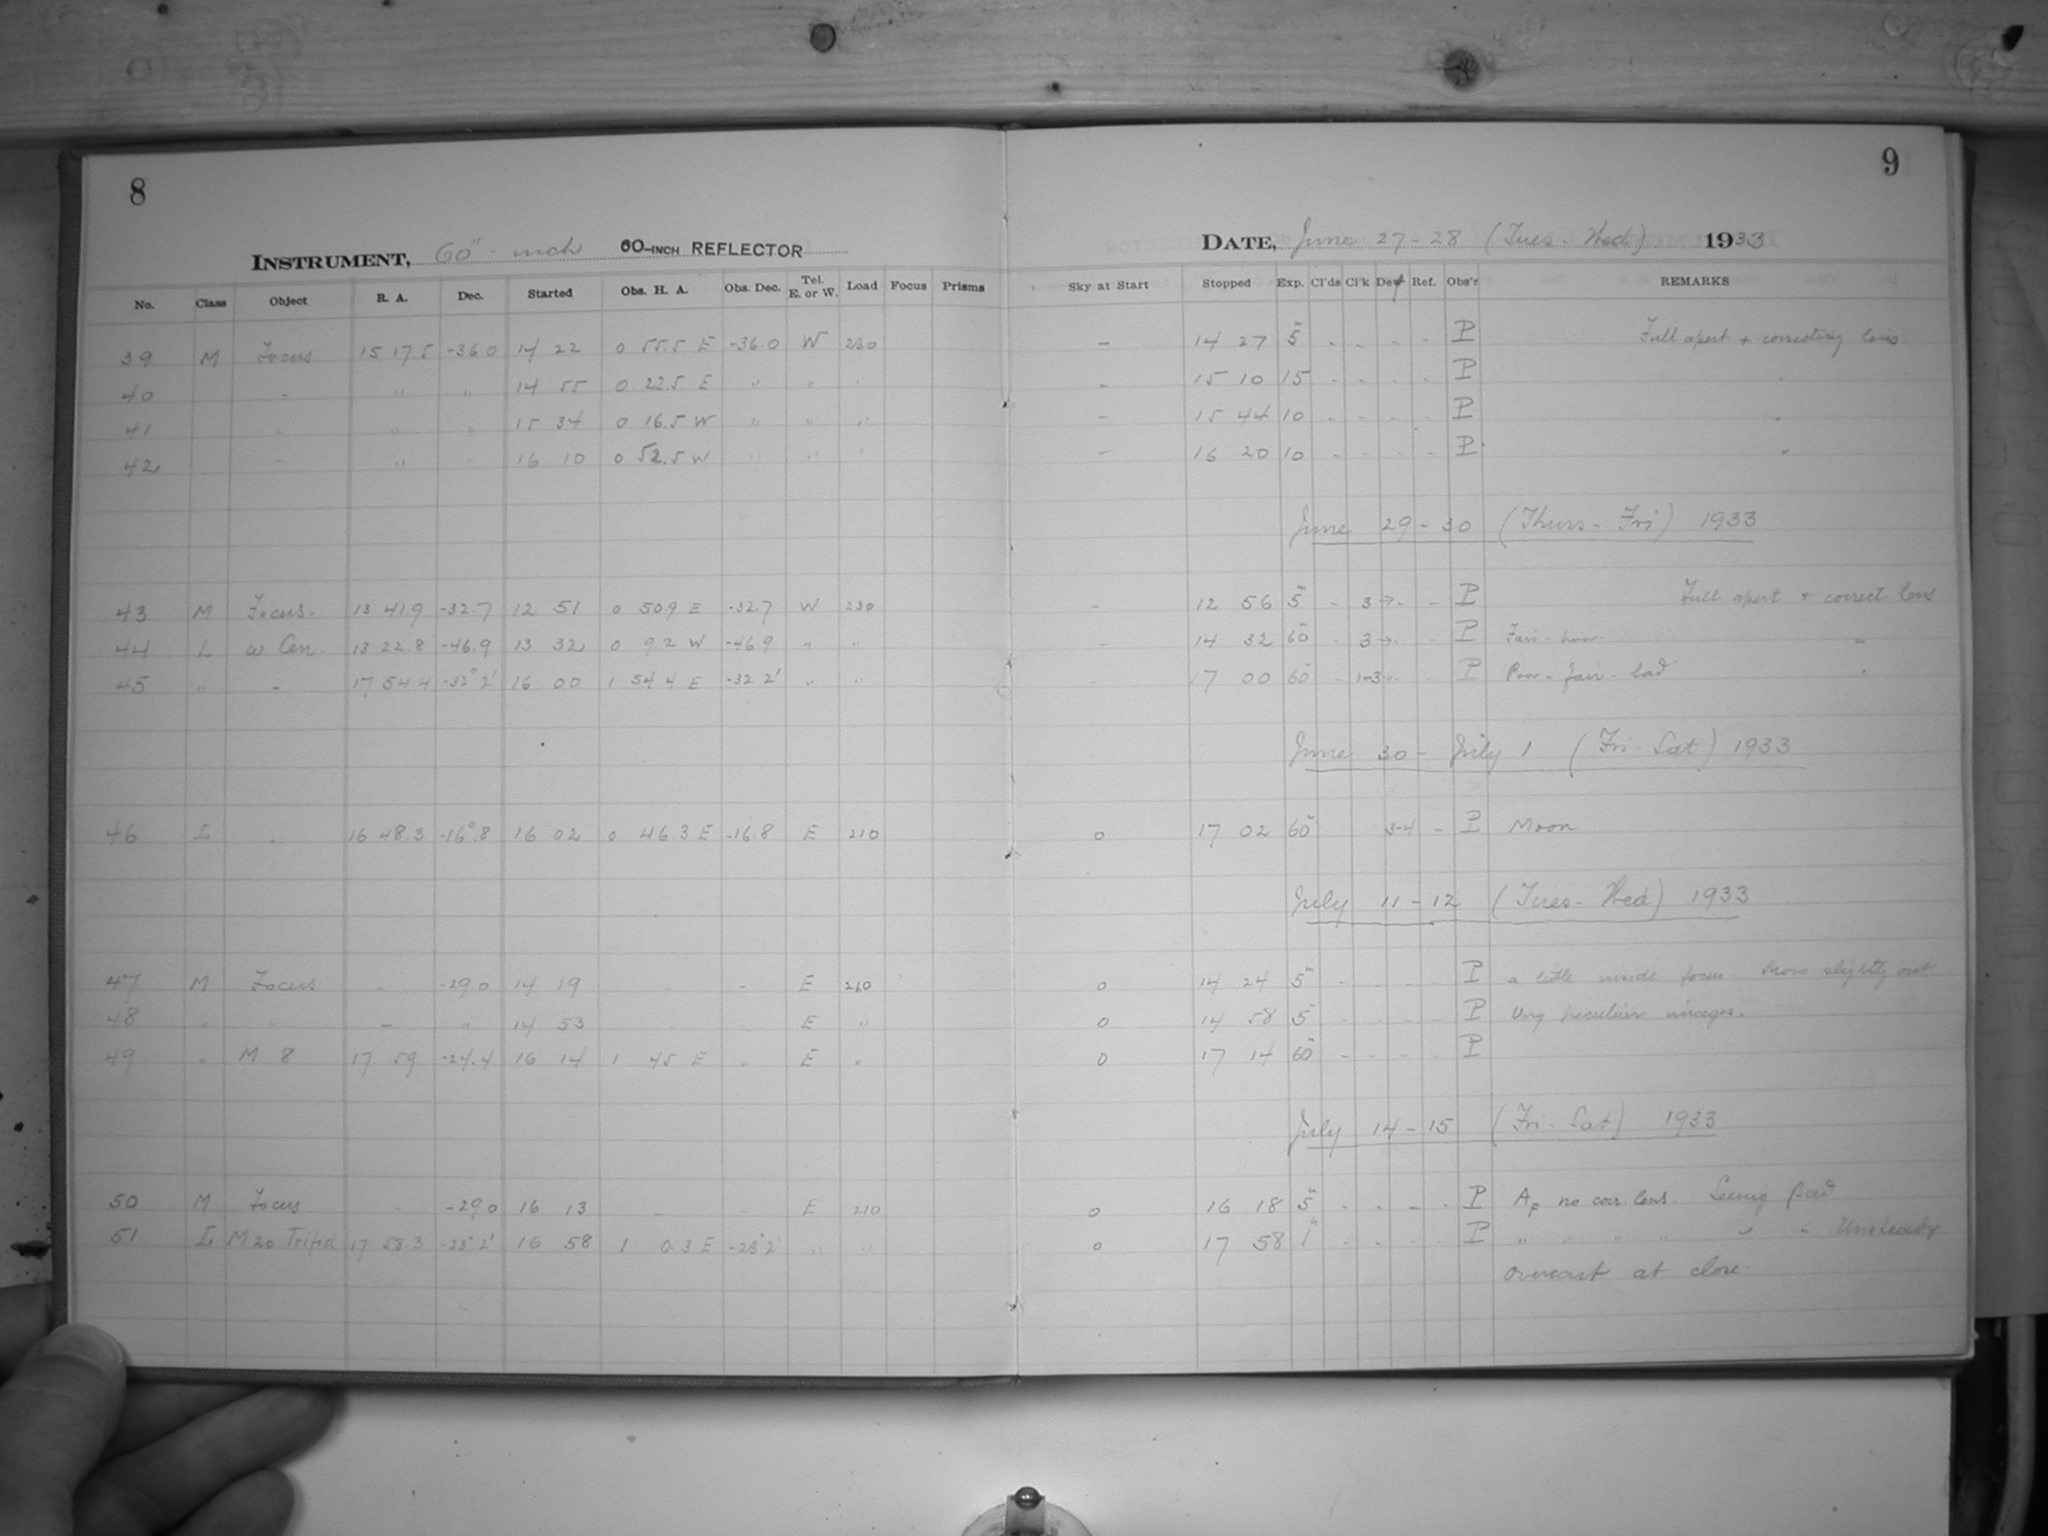 8
INSTRUMENT, 60"-inch 60-INCH REFLECTOR
No. Class Object R. A. Dec. Started Obs. H. A. Obs. Dec. Tel. E. or W. Load Focus Prisms
39 M Focus 15 17.5 -36.0 14 22 0 55.5 E -36.0 W 230
40 " " " 14 55 0 22.5 E " " "
41 " " " 15 34 0 16.5 W " " "
42 " " " 16 10 0 52.5 W " " "
43 M Focus. 13 41.9 -32.7 12 51 0 50.9 E -32.7 W 230
44 L ω Cen. 13 22.8 -46.9 13 32 0 9.2 W -46.9 " "
45 " - 17 54.4 -32° 2' 16 00 1 54.4 E -32 2' " "
46 L . 16 48.3 -16°.8 16 02 0 46.3 E -16.8 E 210
47 M Focus - -29.0 14 19 - - E 210
48 " " - " 14 53 - - E "
49 " M 8 17 59 -24.4 16 14 1 45 E " E "
50 M Focus - -29.0 16 13 - - E 210
51 L M20 Trifid 17 58.3 -23° 2' 16 58 1 0.3 E -23° 2' " "
9
DATE, June 27-28 (Tues-Wed) 1933
Sky at Start Stopped Exp. Cl'ds Cl'k Dew Ref. Obs'r REMARKS
- 14 27 5 - - - - P Full apert + correcting lens
- 15 10 15 - - - - P "
- 15 44 10 - - - - P "
- 16 20 10 - - - - P "
June 29-30 (Thurs-Fri) 1933
- 12 56 5 - 3→ - - P Full apert + correct. lens
- 14 32 60 - 3→ - P Fair - "
17 00 60 - 1-3→ P Poor - fair - bad "
June 30 - July 1 (Fri-Sat) 1933
0 17 02 60 3-4 - P Moon
July 11-12 (Tues-Wed) 1933
0 14 24 5 - - - - P a little inside focus Move slightly out
0 14 58 5 - - - - P Very peculiar images.
0 17 14 60 - - - - P
July 14-15 (Fri-Sat) 1933
0 16 18 5 - - - - P AF no corr. lens. Seeing Bad
0 17 58 1 - - - - P " " " " " - Unsteady
overcast at close